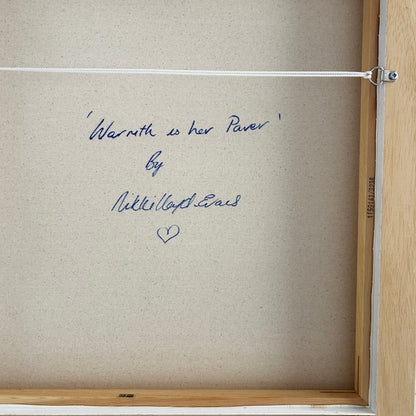 'Warmth is her Power'
By
Nikki Lloyd-Evans
♡